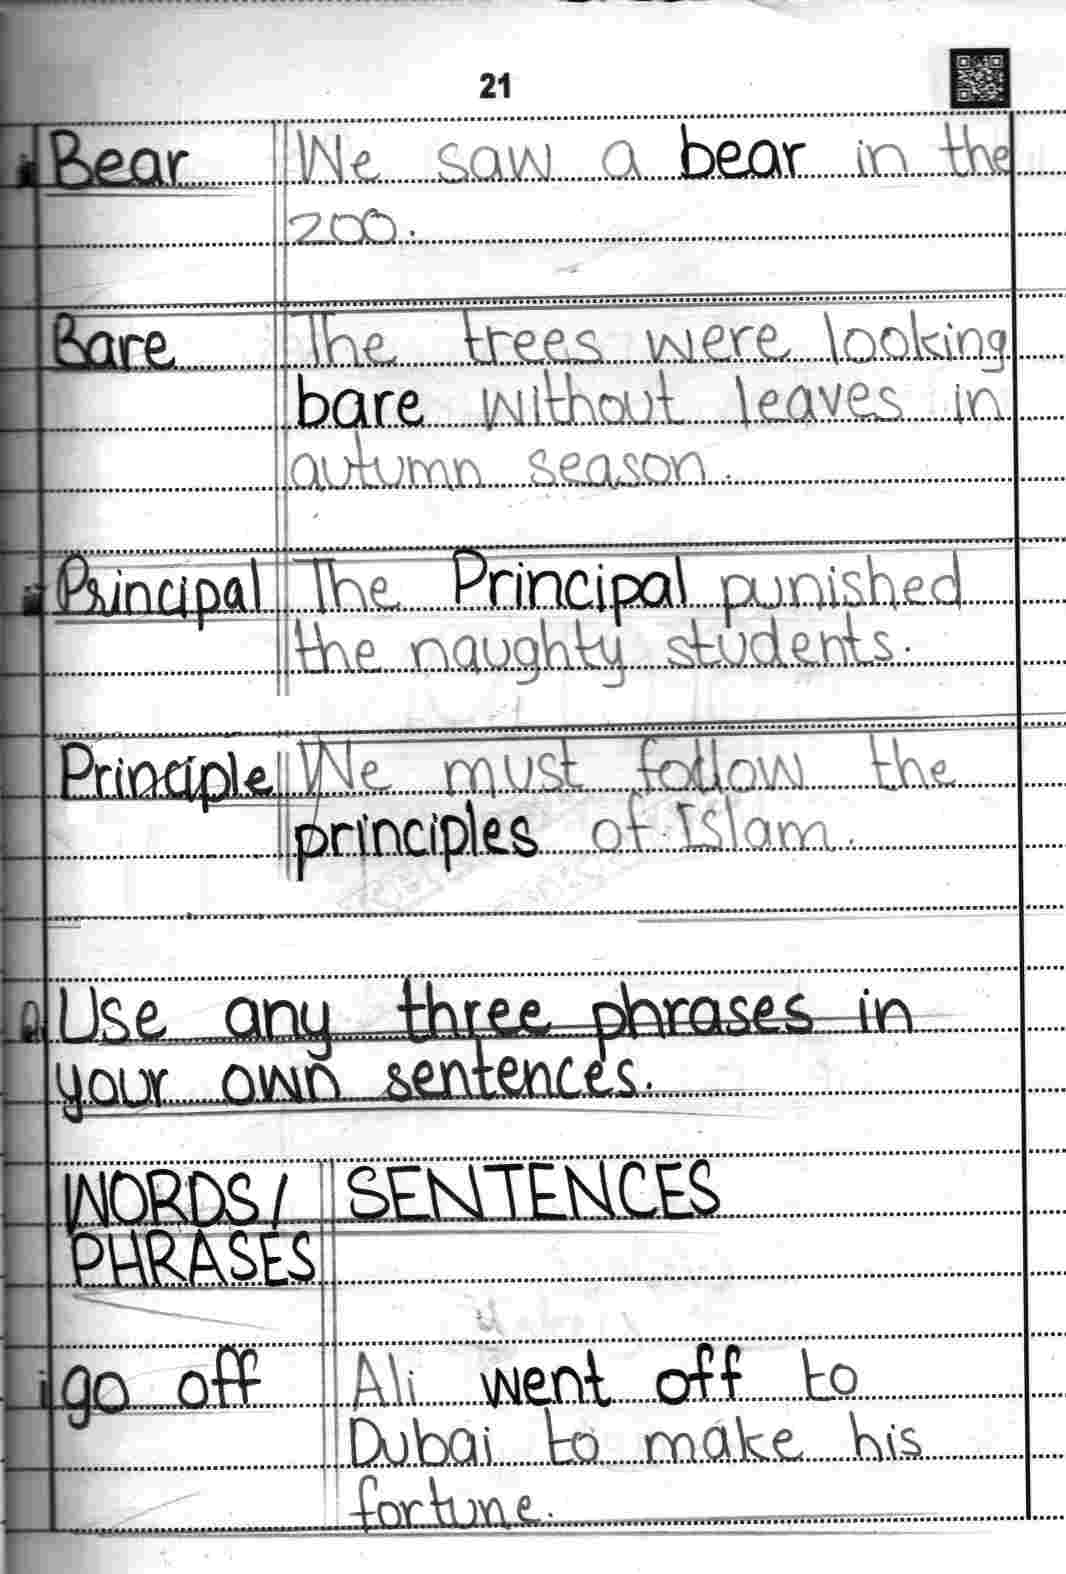 21
Bear We saw a bear in the
zoo.
Bare The trees were looking
bare without leaves in
autumn season.
Principal The Principal punished
the naughty students.
Principle We must follow the
principles of Islam.
Use any three phrases in
your own sentences.
WORDS/ SENTENCES
PHRASES
i go off Ali went off to
Dubai to make his
fortune.